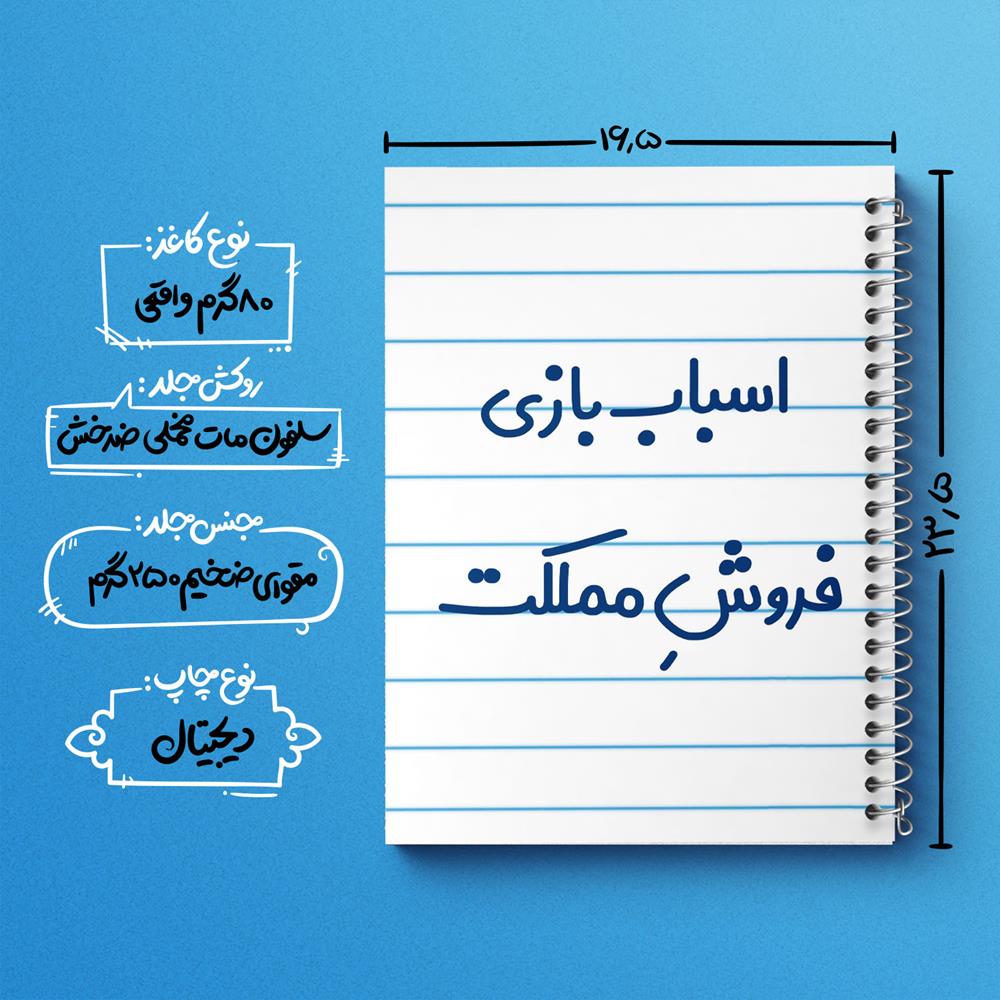 ۱۶٫۵
۲۳٫۵
نوع کاغذ:
۸۰گرم واقعی
روکش جلد:
سلفون مات مخملی ضدخش
جنس جلد:
مقوای ضخیم ۲۵۰ گرم
نوع چاپ:
دیجیتال
اسباب بازی
فروشِ مملکت